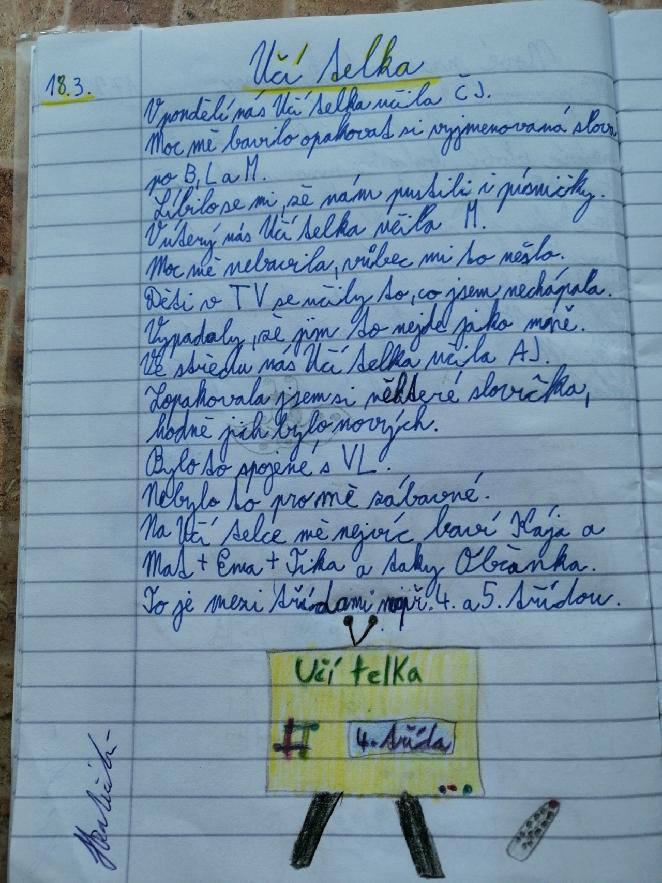 18.3.
Učí telka
V pondělí nás Učí telka učila ČJ.
Moc mě bavilo opakovat si vyjmenovaná slova
po B, L a M.
Líbilo se mi, že nám pustili i písničky.
V úterý nás Učí telka učila M.
Moc mě nebavila, vůbec mi to nešlo.
Děti v TV se učily to, co jsem nechápala.
Vypadaly, že jim to nejde jako mně.
Ve středu nás Učí telka učila AJ.
Zopakovala jsem si některé slovíčka,
hodně jich bylo nových.
Bylo to spojené s VL.
Nebylo to pro mě zábavné.
Na Učí telce mě nejvíc baví Kája a
Mat + Ema + Tika a taky Občanka.
To je mezi třídami např. 4. a 5. třídou.
Učí telka
4. třída